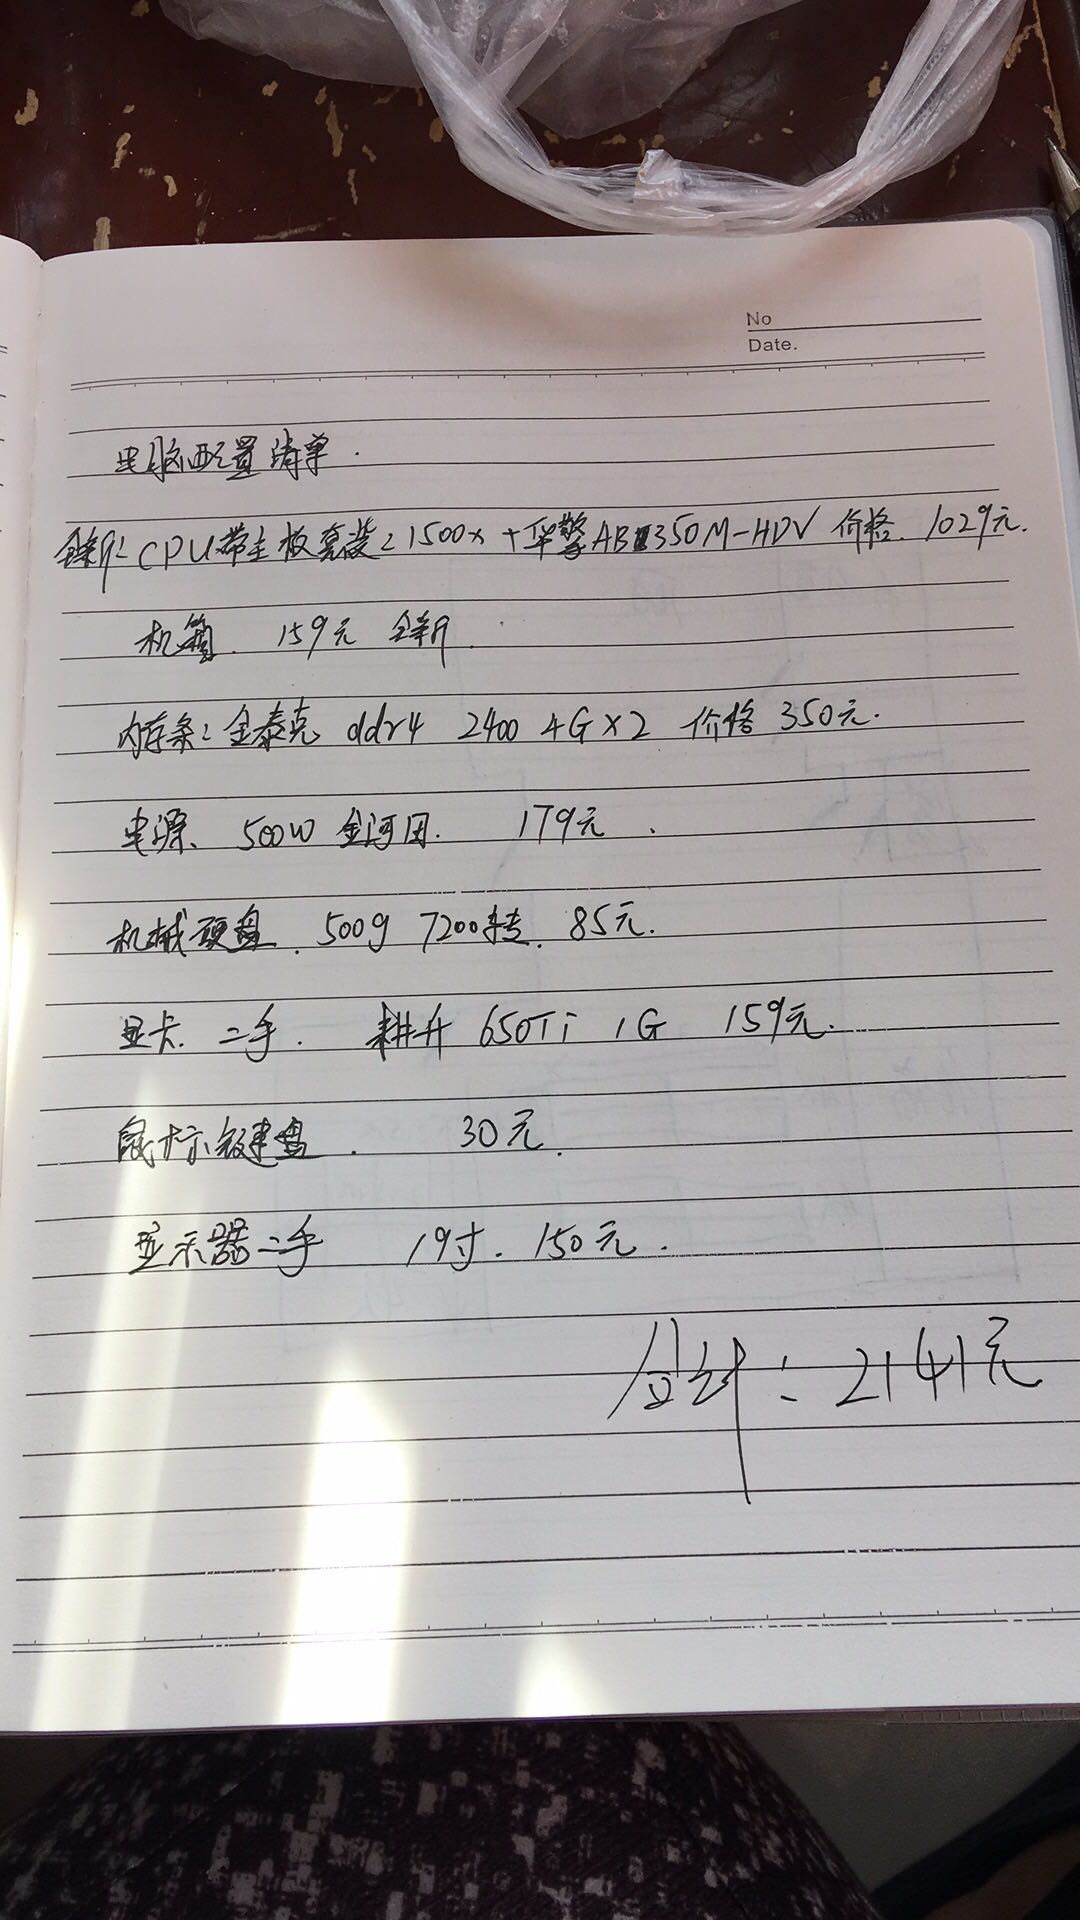 No
Date.
电脑配置清单.
全新: CPU带主板套装: 1500x + 华擎AB350M-HDV 价格. 1029元.
机箱. 159元 全新.
内存条: 金泰克 ddr4 2400 4G×2 价格 350元.
电源、 500W 金河田. 179元.
机械硬盘. 500g 7200转. 85元.
显卡. 二手. 耕升 650Ti 1G 159元.
鼠标键盘. 30元.
显示器二手 19寸. 150元.
合计: 2141元